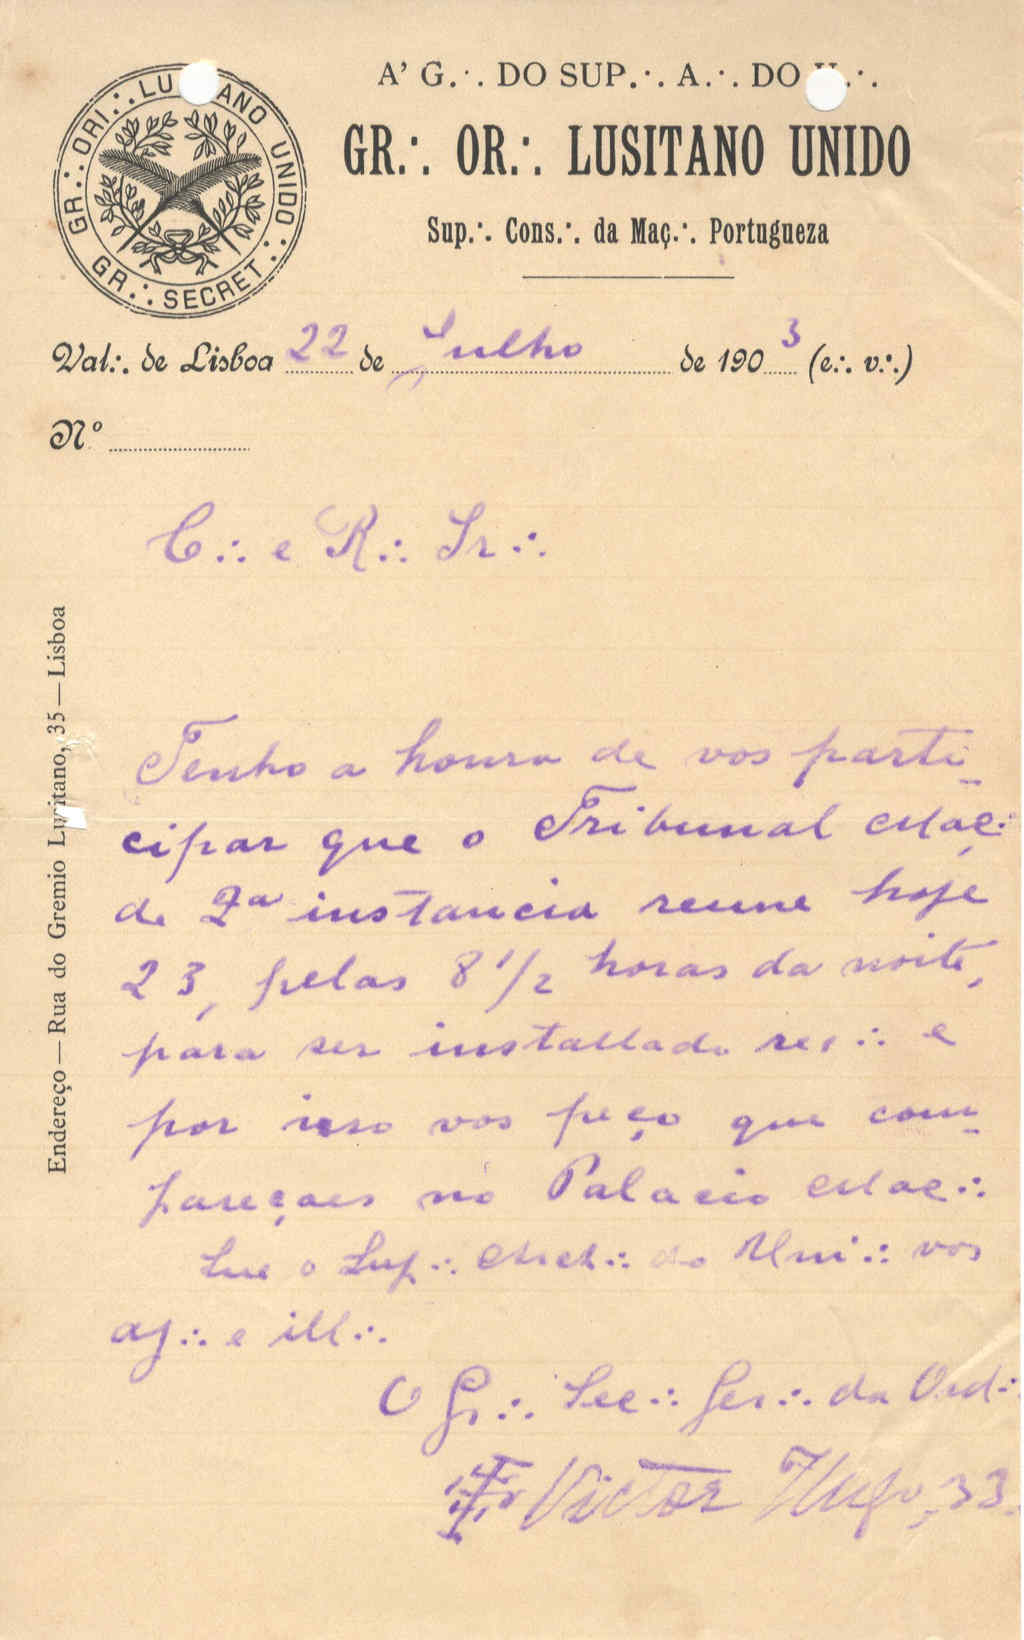 A' G.·. DO SUP.·. A.·. DO U.·.
GR.·. OR.·. LUSITANO UNIDO
Sup.·. Cons.·. da Maç.·. Portugueza
GR.·. ORI.·. LUSITANO UNIDO.·.
GR.·. SECRET.·.
Val.·. de Lisboa 22 de Julho de 1903 (e.·. v.·.)
Nº
C.·. e R.·. Ir.·.
Endereço — Rua do Gremio Lusitano, 35 — Lisboa
Tenho a honra de vos parti-
cipar que o Tribunal Maç.·.
de 2ª instancia reune hoje
23, pelas 8 1/2 horas da noite,
para ser installado reg.·. e
por isso vos peço que com-
pareçaes no Palacio Maç.·.
Que o Sup.·. Arch.·. do Uni.·. vos
aj.·. e ill.·.
O Gr.·. Sec.·. Ger.·. da Ord.·.
Victor Hugo, 33.